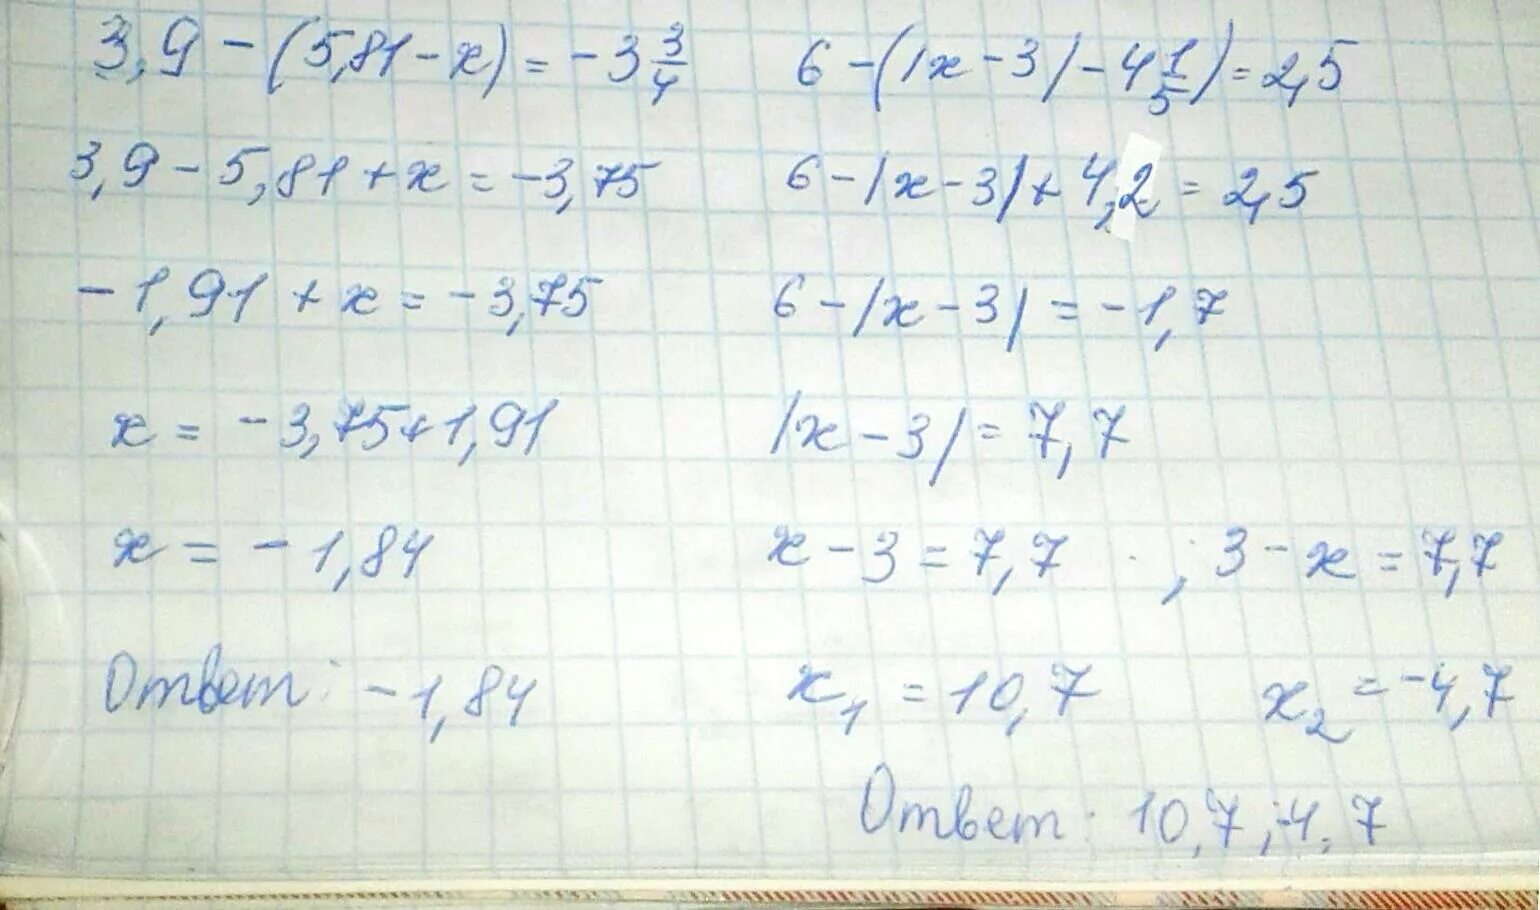 3,9 - (5,81 - x) = -3 3/4
3,9 - 5,81 + x = -3,75
-1,91 + x = -3,75
x = -3,75 + 1,91
x = -1,84
Ответ: -1,84
6 - (|x - 3| - 4 1/5) = 2,5
6 - |x - 3| + 4,2 = 2,5
6 - |x - 3| = -1,7
|x - 3| = 7,7
x - 3 = 7,7 ; 3 - x = 7,7
x₁ = 10,7 x₂ = -4,7
Ответ: 10,7; -4,7